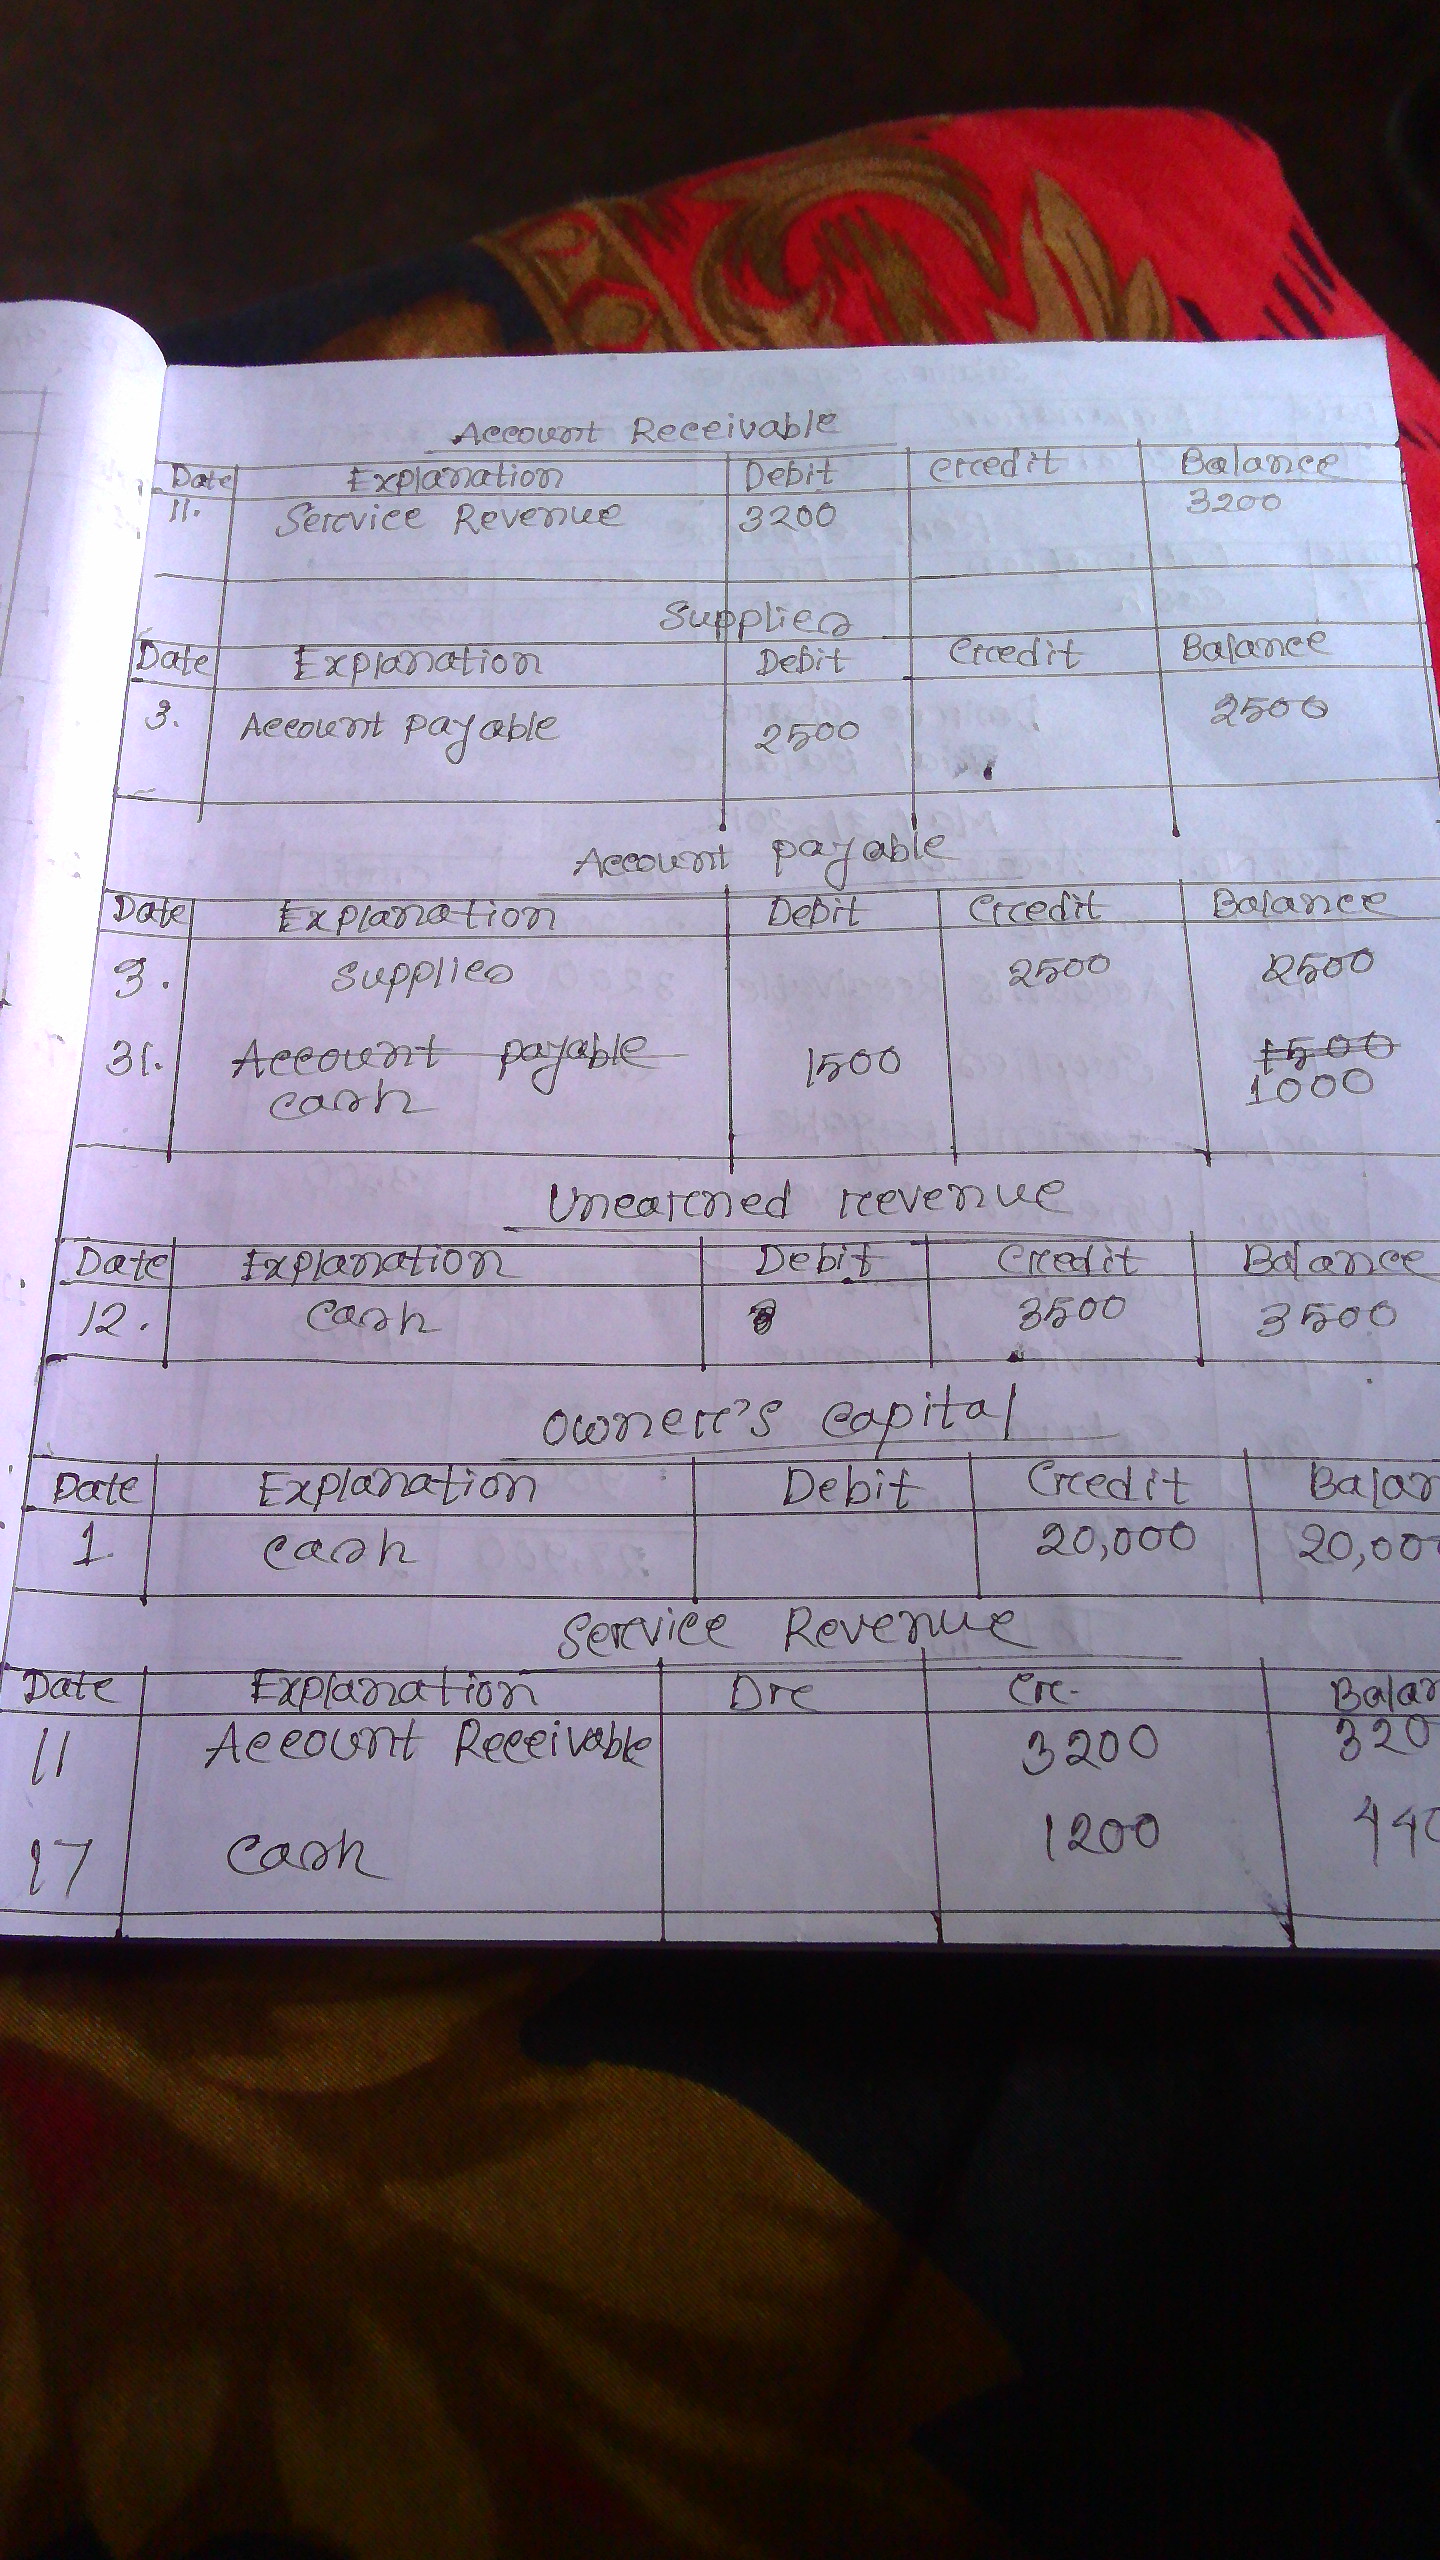 Account Receivable
Date Explanation Debit Credit Balance
11. Service Revenue 3200 3200
Supplies
Date Explanation Debit Credit Balance
3. Account payable 2500 2500
Account payable
Date Explanation Debit Credit Balance
3. Supplies 2500 2500
31. Account payable 1500 1500
cash 1000
Unearned revenue
Date Explanation Debit Credit Balance
12. Cash 3500 3500
Owner's Capital
Date Explanation Debit Credit Balan
1. Cash 20,000 20,00
Service Revenue
Date Explanation Dr Cr. Balan
11 Account Receivable 3200 320
17 Cash 1200 440